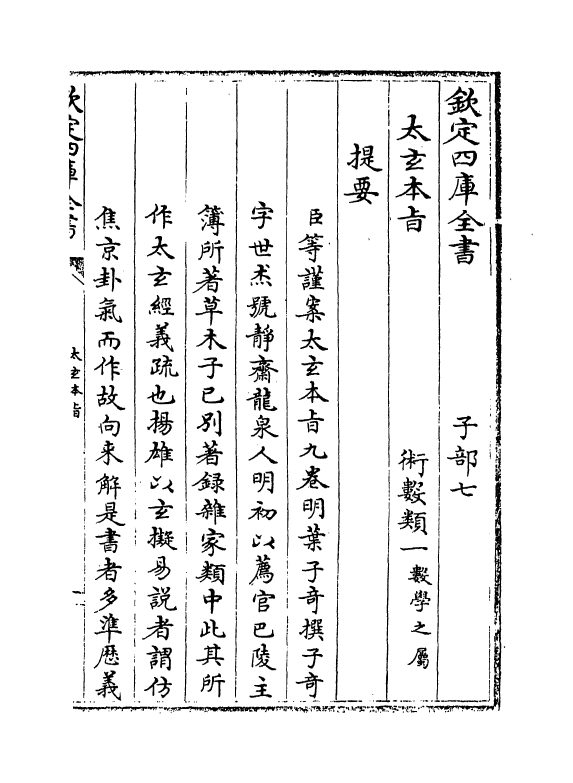 欽定四庫全書 子部七
太玄本㫖 術數類一數學之屬
提要
臣等謹案太玄本㫖九卷明葉子奇撰子奇
字世杰號靜齋龍泉人明初以薦官巴陵主
簿所著草木子已別著録雜家類中此其所
作太玄經義疏也揚雄以玄擬易說者謂仿
焦京卦氣而作故向来解是書者多準歴義
欽定四庫全書
太玄本㫖
一